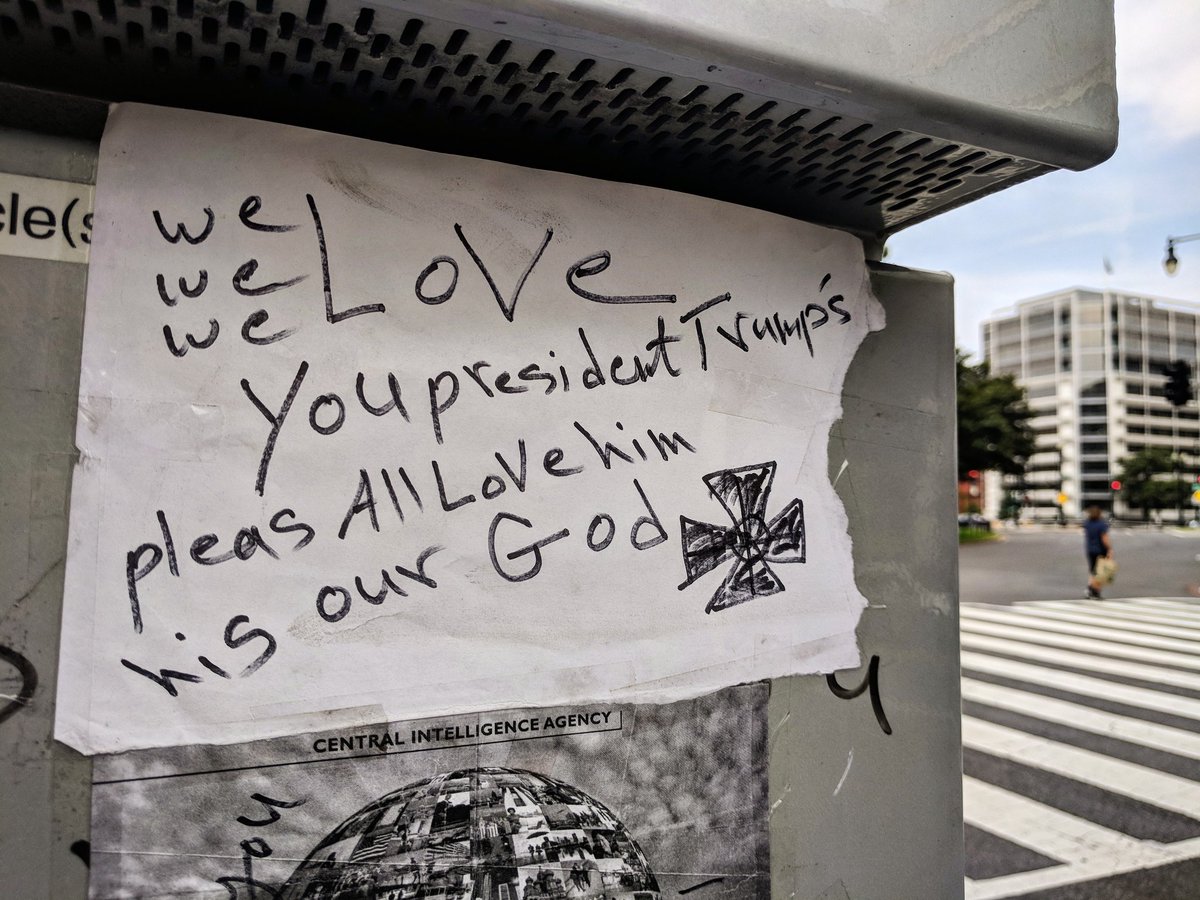 cle(s
we
we
we
LoVe
You president Trump's
pleas All LoVe him
his our God
CENTRAL INTELLIGENCE AGENCY
you
y